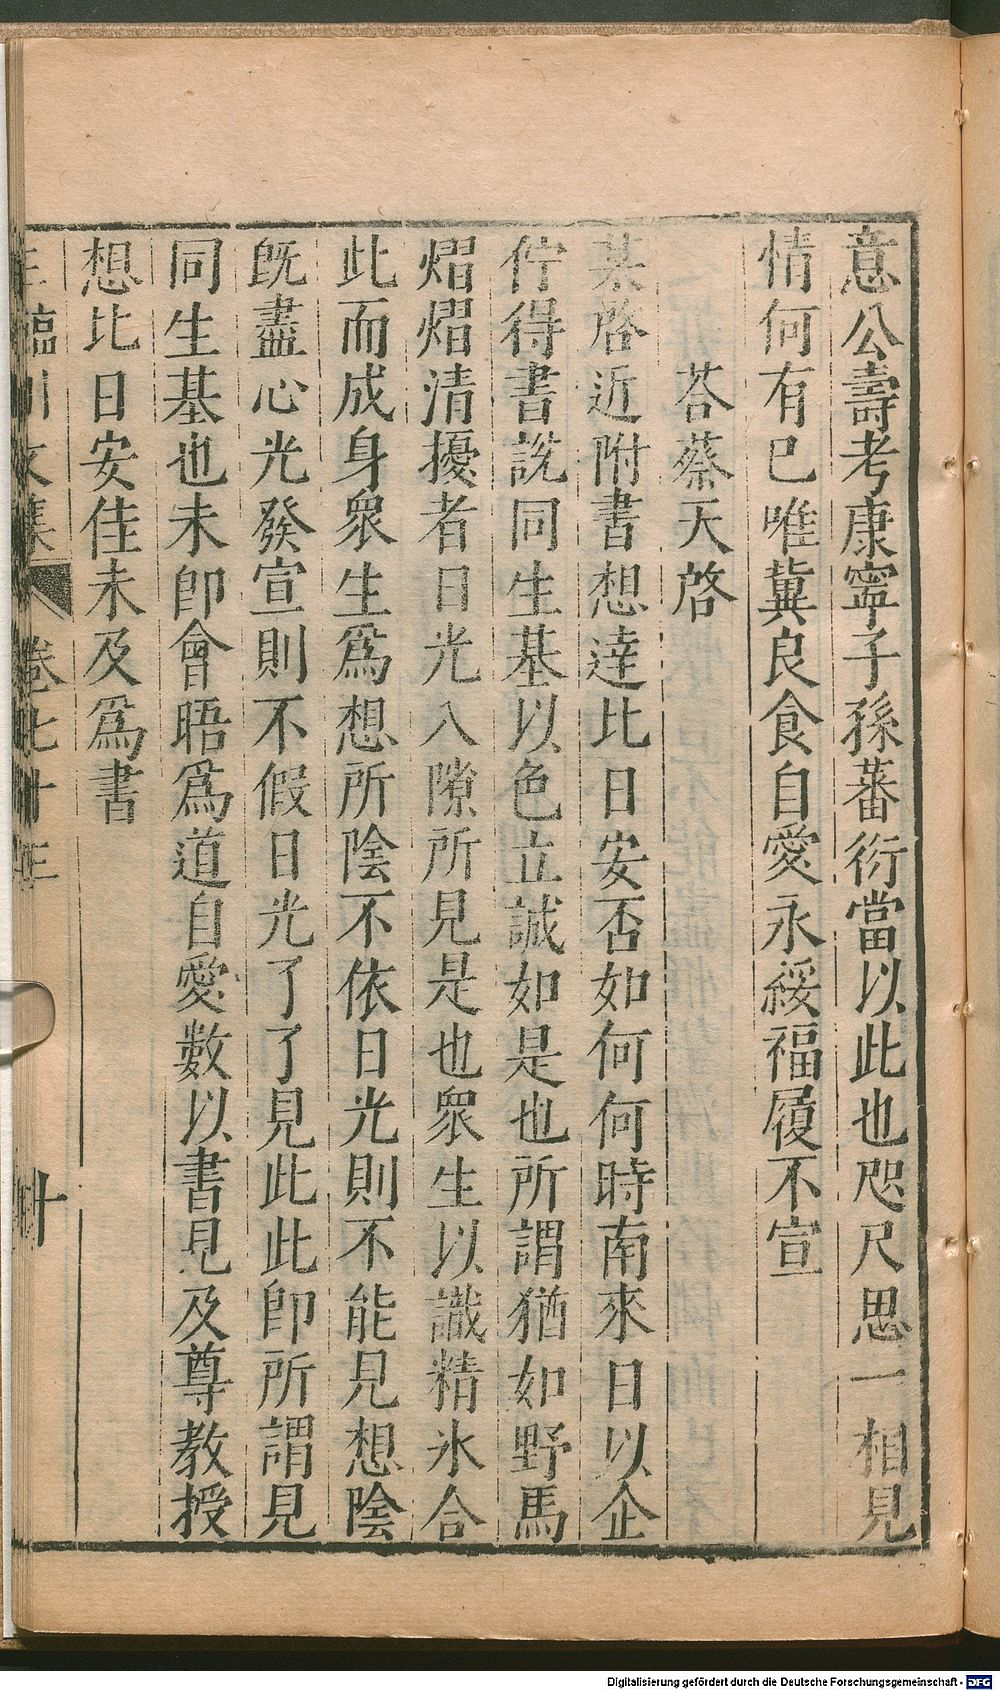 意公壽考康寧子孫蕃衍當以此也咫尺思一相見
情何有已唯冀良食自愛永綏福履不宣
荅蔡天啓
某啓近附書想達比日安否如何何時南來日以企
佇得書說同生基以色立誠如是也所謂猶如野馬
熠熠清擾者日光入隙所見是也衆生以識精氷合
此而成身衆生爲想所陰不依日光則不能見想陰
旣盡心光發宣則不假日光了了見此此卽所謂見
同生基也未卽會晤爲道自愛數以書見及尊教授
想比日安佳未及爲書
王臨川文集 卷七十三 十
Digitalisierung gefördert durch die Deutsche Forschungsgemeinschaft - DFG